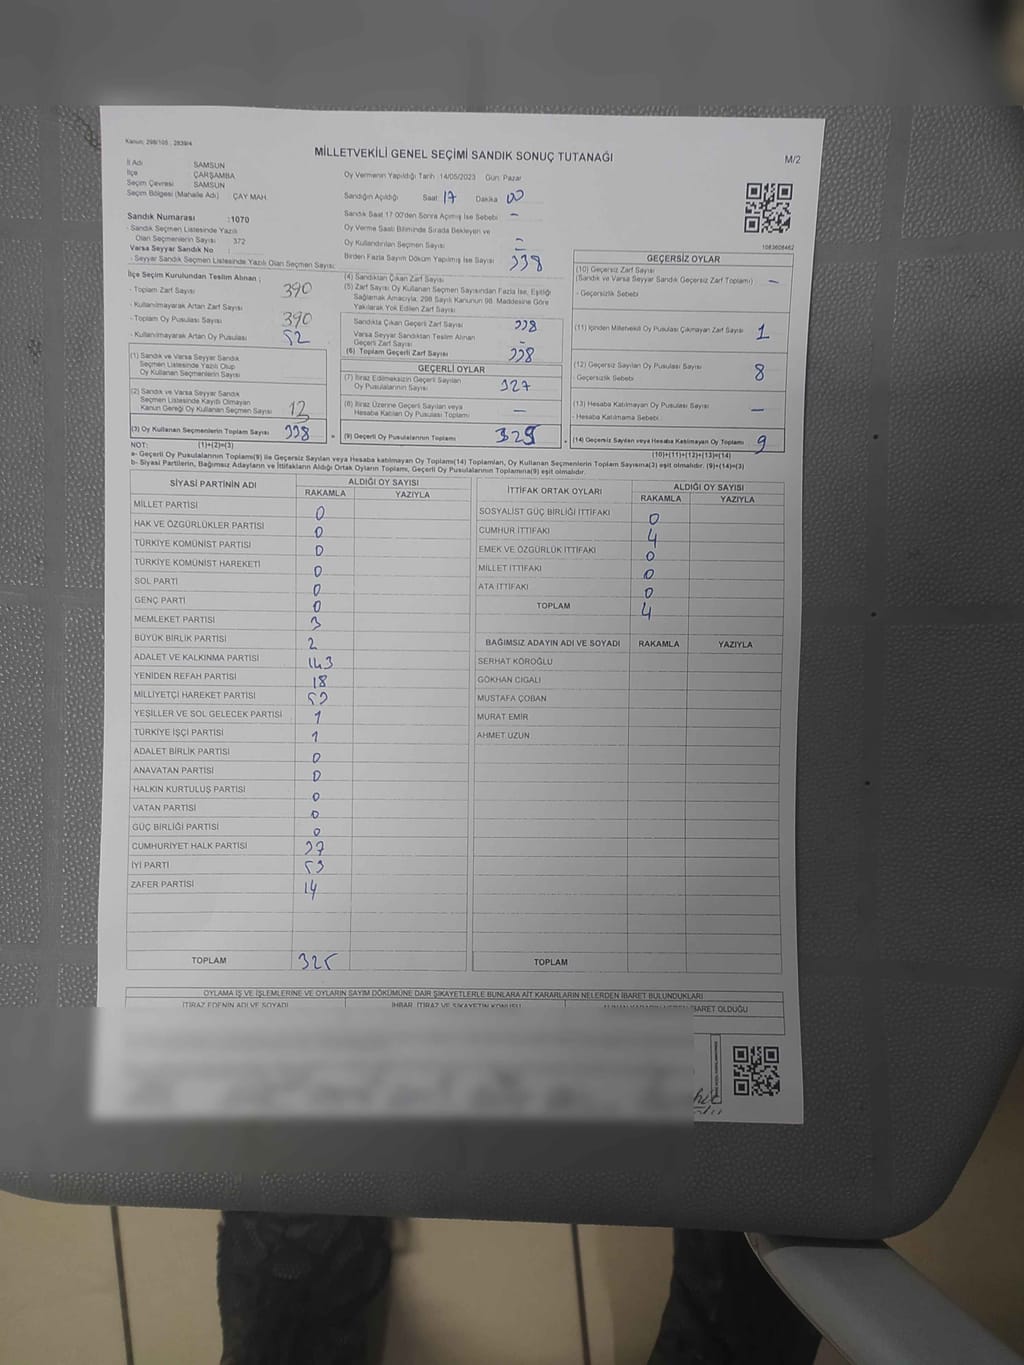 Kanun: 298/105 , 2839/4
MİLLETVEKİLİ GENEL SEÇİMİ SANDIK SONUÇ TUTANAĞI
M/2
İl Adı SAMSUN
İlçe ÇARŞAMBA
Seçim Çevresi SAMSUN
Seçim Bölgesi (Mahalle Adı) ÇAY MAH.
Sandık Numarası :1070
- Sandık Seçmen Listesinde Yazılı
Olan Seçmenlerin Sayısı 372
Varsa Seyyar Sandık No :
- Seyyar Sandık Seçmen Listesinde Yazılı Olan Seçmen Sayısı:
Oy Vermenin Yapıldığı Tarih :14/05/2023 Gün: Pazar
Sandığın Açıldığı Saat 17 Dakika 00
Sandık Saat 17.00'den Sonra Açılmış İse Sebebi -
Oy Verme Saati Bitiminde Sırada Bekleyen ve
Oy Kullandırılan Seçmen Sayısı -
Birden Fazla Sayım Döküm Yapılmış İse Sayısı 338
1083608462
İlçe Seçim Kurulundan Teslim Alınan ;
- Toplam Zarf Sayısı 390
- Kullanılmayarak Artan Zarf Sayısı
- Toplam Oy Pusulası Sayısı 390
- Kullanılmayarak Artan Oy Pusulası 52
(1) Sandık ve Varsa Seyyar Sandık
Seçmen Listesinde Yazılı Olup
Oy Kullanan Seçmenlerin Sayısı
(2) Sandık ve Varsa Seyyar Sandık
Seçmen Listesinde Kayıtlı Olmayan
Kanun Gereği Oy Kullanan Seçmen Sayısı 12
(3) Oy Kullanan Seçmenlerin Toplam Sayısı 338
(4) Sandıktan Çıkan Zarf Sayısı
(5) Zarf Sayısı Oy Kullanan Seçmen Sayısından Fazla İse, Eşitliği
Sağlamak Amacıyla, 298 Sayılı Kanunun 98. Maddesine Göre
Yakılarak Yok Edilen Zarf Sayısı
Sandıkta Çıkan Geçerli Zarf Sayısı 338
Varsa Seyyar Sandıktan Teslim Alınan
Geçerli Zarf Sayısı -
(6) Toplam Geçerli Zarf Sayısı 338
GEÇERLİ OYLAR
(7) İtiraz Edilmeksizin Geçerli Sayılan
Oy Pusulalarının Sayısı 327
(8) İtiraz Üzerine Geçerli Sayılan veya
Hesaba Katılan Oy Pusulası Toplamı —
= (9) Geçerli Oy Pusulalarının Toplamı 329
GEÇERSİZ OYLAR
(10) Geçersiz Zarf Sayısı
(Sandık ve Varsa Seyyar Sandık Geçersiz Zarf Toplamı) -
- Geçersizlik Sebebi
(11) İçinden Milletvekili Oy Pusulası Çıkmayan Zarf Sayısı 1
(12) Geçersiz Sayılan Oy Pusulası Sayısı 8
- Geçersizlik Sebebi
(13) Hesaba Katılmayan Oy Pusulası Sayısı —
- Hesaba Katılmama Sebebi
(14) Geçersiz Sayılan veya Hesaba Katılmayan Oy Toplamı 9
NOT: (1)+(2)=(3)
(10)+(11)+(12)+(13)=(14)
a- Geçerli Oy Pusulalarının Toplamı(9) ile Geçersiz Sayılan veya Hesaba katılmayan Oy Toplamı(14) Toplamları, Oy Kullanan Seçmenlerin Toplam Sayısına(3) eşit olmalıdır. (9)+(14)=(3)
b- Siyasi Partilerin, Bağımsız Adayların ve İttifakların Aldığı Ortak Oyların Toplamı, Geçerli Oy Pusulalarının Toplamına(9) eşit olmalıdır.
SİYASİ PARTİNİN ADI ALDIĞI OY SAYISI
RAKAMLA YAZIYLA
MİLLET PARTİSİ 0
HAK VE ÖZGÜRLÜKLER PARTİSİ 0
TÜRKİYE KOMÜNİST PARTİSİ 0
TÜRKİYE KOMÜNİST HAREKETİ 0
SOL PARTİ 0
GENÇ PARTİ 0
MEMLEKET PARTİSİ 3
BÜYÜK BİRLİK PARTİSİ 2
ADALET VE KALKINMA PARTİSİ 143
YENİDEN REFAH PARTİSİ 18
MİLLİYETÇİ HAREKET PARTİSİ 53
YEŞİLLER VE SOL GELECEK PARTİSİ 1
TÜRKİYE İŞÇİ PARTİSİ 1
ADALET BİRLİK PARTİSİ 0
ANAVATAN PARTİSİ 0
HALKIN KURTULUŞ PARTİSİ 0
VATAN PARTİSİ 0
GÜÇ BİRLİĞİ PARTİSİ 0
CUMHURİYET HALK PARTİSİ 37
İYİ PARTİ 53
ZAFER PARTİSİ 14
TOPLAM 325
İTTİFAK ORTAK OYLARI ALDIĞI OY SAYISI
RAKAMLA YAZIYLA
SOSYALİST GÜÇ BİRLİĞİ İTTİFAKI 0
CUMHUR İTTİFAKI 4
EMEK VE ÖZGÜRLÜK İTTİFAKI 0
MİLLET İTTİFAKI 0
ATA İTTİFAKI 0
TOPLAM 4
BAĞIMSIZ ADAYIN ADI VE SOYADI RAKAMLA YAZIYLA
SERHAT KÖROĞLU
GÖKHAN CIGALI
MUSTAFA ÇOBAN
MURAT EMİR
AHMET UZUN
TOPLAM
OYLAMA İŞ VE İŞLEMLERİNE VE OYLARIN SAYIM DÖKÜMÜNE DAİR ŞİKAYETLERLE BUNLARA AİT KARARLARIN NELERDEN İBARET BULUNDUKLARI
İTİRAZ EDENİN ADI VE SOYADI İHBAR, İTİRAZ VE ŞİKAYETİN KONUSU İBARET OLDUĞU